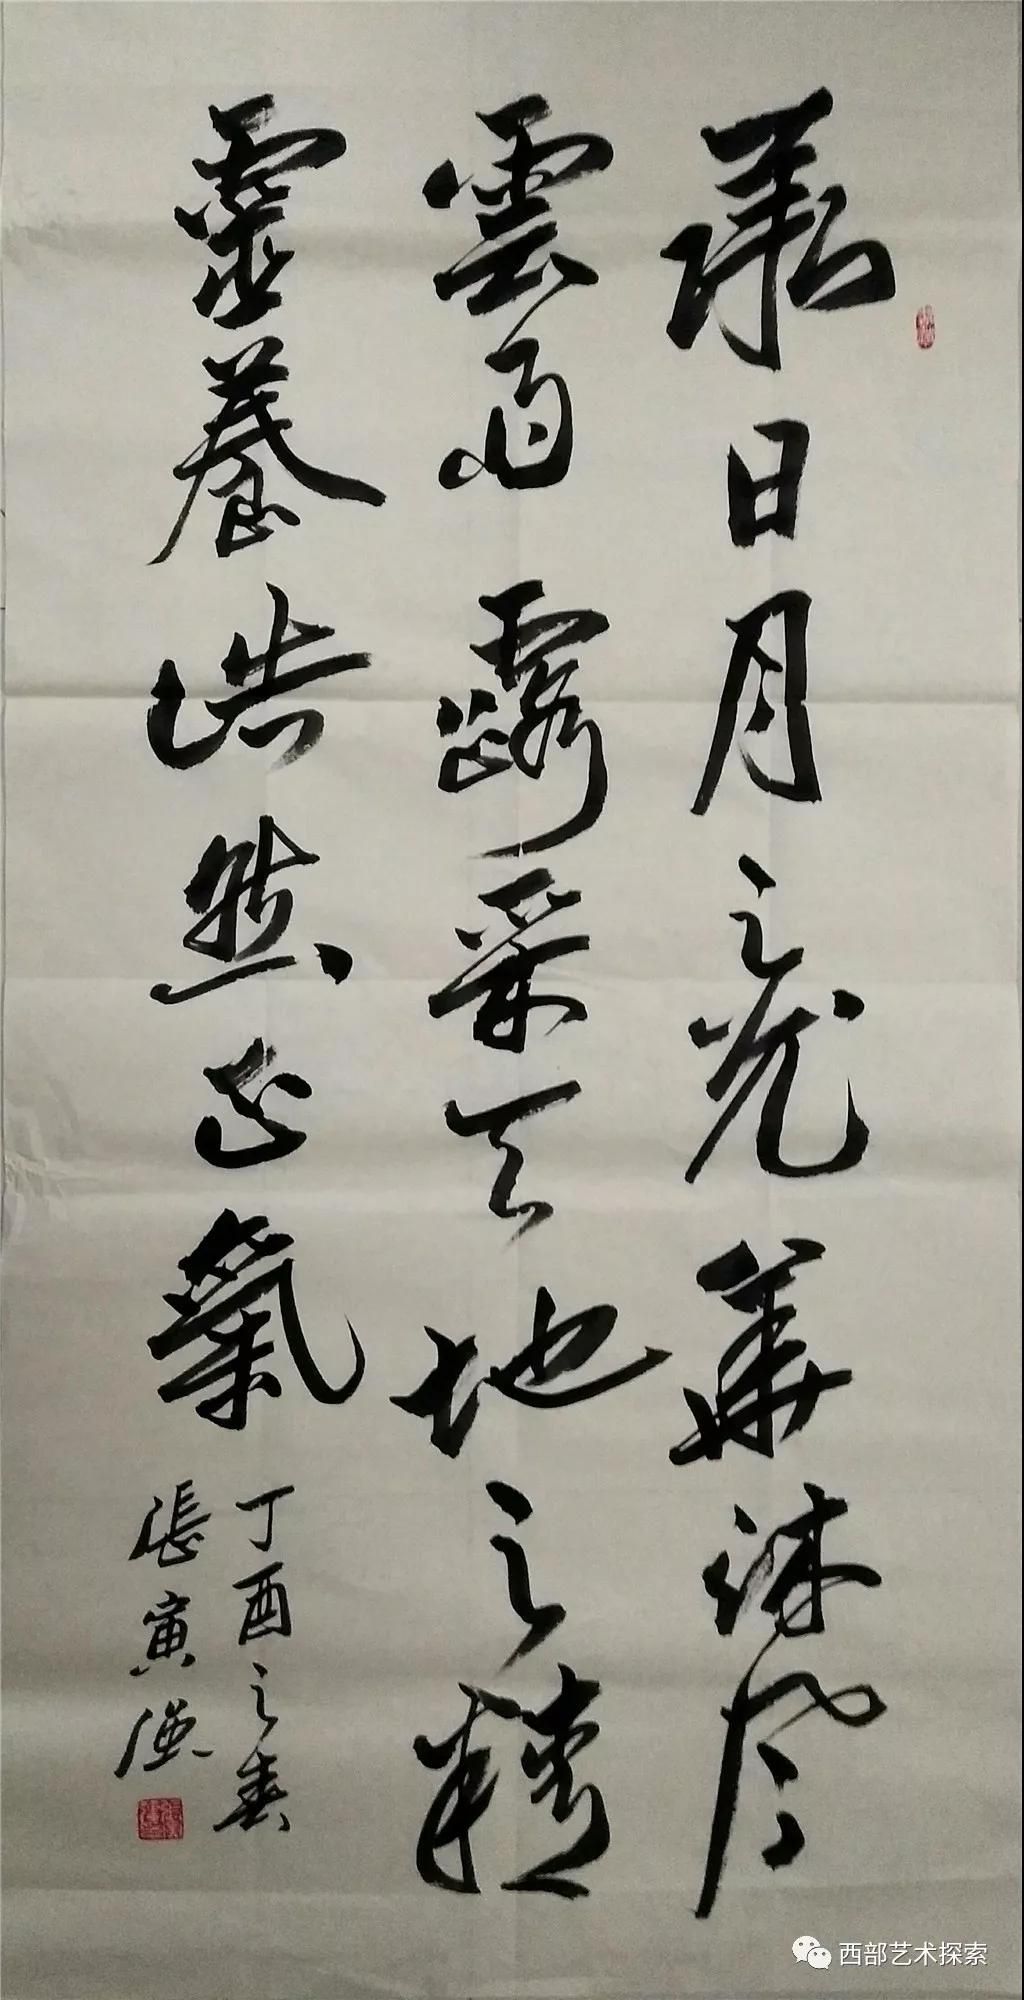 聚日月之光華沐風
雲雨露采天地之精
靈養浩然正氣
丁酉之春
張寅
西部艺术探索